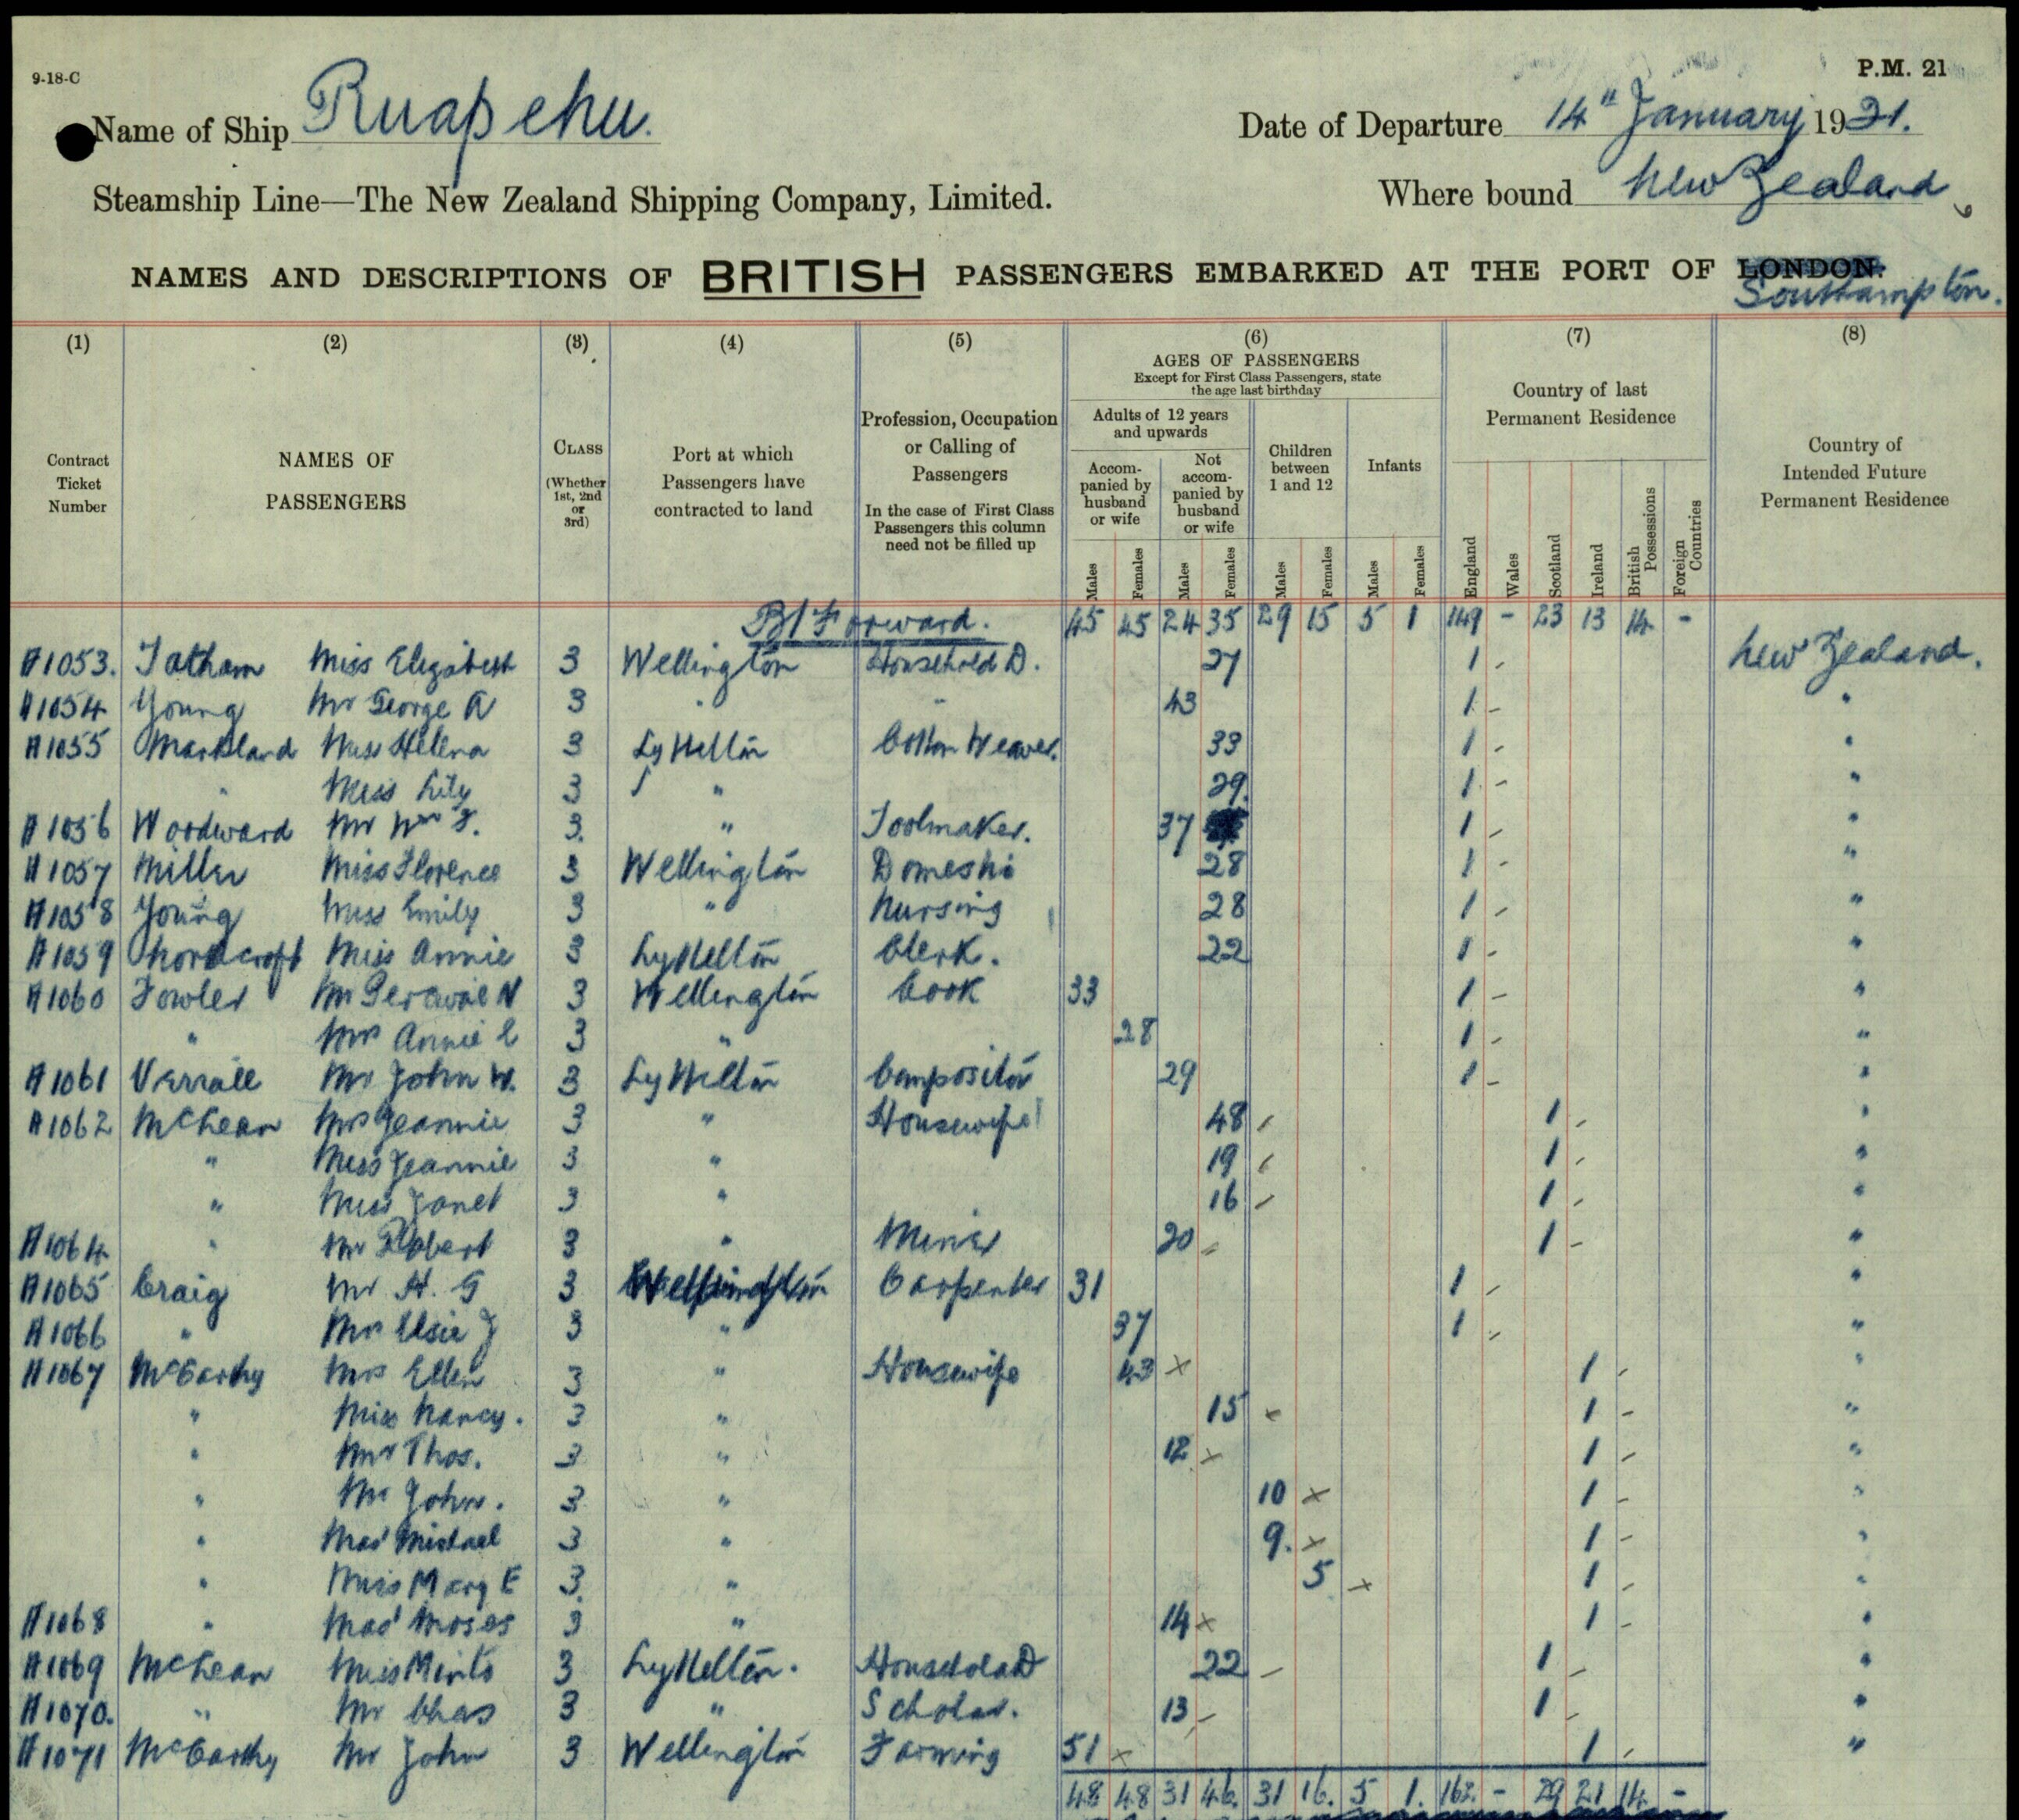 9-18-C
P.M. 21
Name of Ship Ruapehu.
Date of Departure 14th January 1921.
Steamship Line—The New Zealand Shipping Company, Limited.
Where bound New Zealand
NAMES AND DESCRIPTIONS OF BRITISH PASSENGERS EMBARKED AT THE PORT OF LONDON.
Southampton.
(1) (2) (3) (4) (5) (6) (7) (8)
Contract Ticket Number
NAMES OF PASSENGERS
CLASS (Whether 1st, 2nd or 3rd)
Port at which Passengers have contracted to land
Profession, Occupation or Calling of Passengers
In the case of First Class Passengers this column need not be filled up
AGES OF PASSENGERS
Except for First Class Passengers, state the age last birthday
Adults of 12 years and upwards
Accompanied by husband or wife
Not accompanied by husband or wife
Children between 1 and 12
Infants
Males Females Males Females Males Females Males Females
Country of last Permanent Residence
England Wales Scotland Ireland British Possessions Foreign Countries
Country of Intended Future Permanent Residence
Bt Forward. 45 45 24 35 29 15 5 1 149 - 23 13 14 -
A1053. Tatham Miss Elizabeth 3 Wellington Household D. 27 1 New Zealand.
A1054 Young Mr George A 3 " " 43 1 "
A1055 Markland Miss Helena 3 Lyttelton Cotton Weaver. 33 1 "
" Miss Lily 3 " 29. 1 "
A1056 Woodward Mr Wm F. 3. " Toolmaker. 37 1 "
A1057 Miller Miss Florence 3 Wellington Domestic 28 1 "
A1058 Young Miss Emily 3 " Nursing 28 1 "
A1059 Miss Annie 3 Lyttelton Clerk. 22 1 "
A1060 Fowler Mr N 3 Wellington Cook 33 1 "
" Mrs Annie E 3 " 28 1 "
A1061 Verrall Mr John W. 3 Lyttelton Compositor 29 1 "
A1062 McLean Mrs Jeannie 3 " Housewife 48 1 "
" Miss Jeannie 3 " 19 1 "
" Miss Janet 3 " 16 1 "
A1064 " Mr Robert 3 " Miner 20 1 "
A1065 Craig Mr H. G 3 Wellington Carpenter 31 1 "
A1066 " Mrs Elsie J 3 " 37 1 "
A1067 McCarthy Mrs Ellen 3 " Housewife 43 x 1 "
" Miss Nancy. 3 " 15 x 1 "
" Mr Thos. 3 " 12 x 1 "
" Mr John. 3 " 10 x 1 "
" Mas Michael 3 " 9. x 1 "
" Miss Mary E 3. " 5 x 1 "
A1068 " Mas Moses 3 " 14 x 1 "
A1069 McLean Miss 3 Lyttelton. Household D 22 1 "
A1070. " Mr Chas 3 " Scholar. 13 1 "
A1071 McCarthy Mr John 3 Wellington Farming 51 x 1 "
48 48 31 46. 31 16. 5 1. 162. - 29 21 14. -